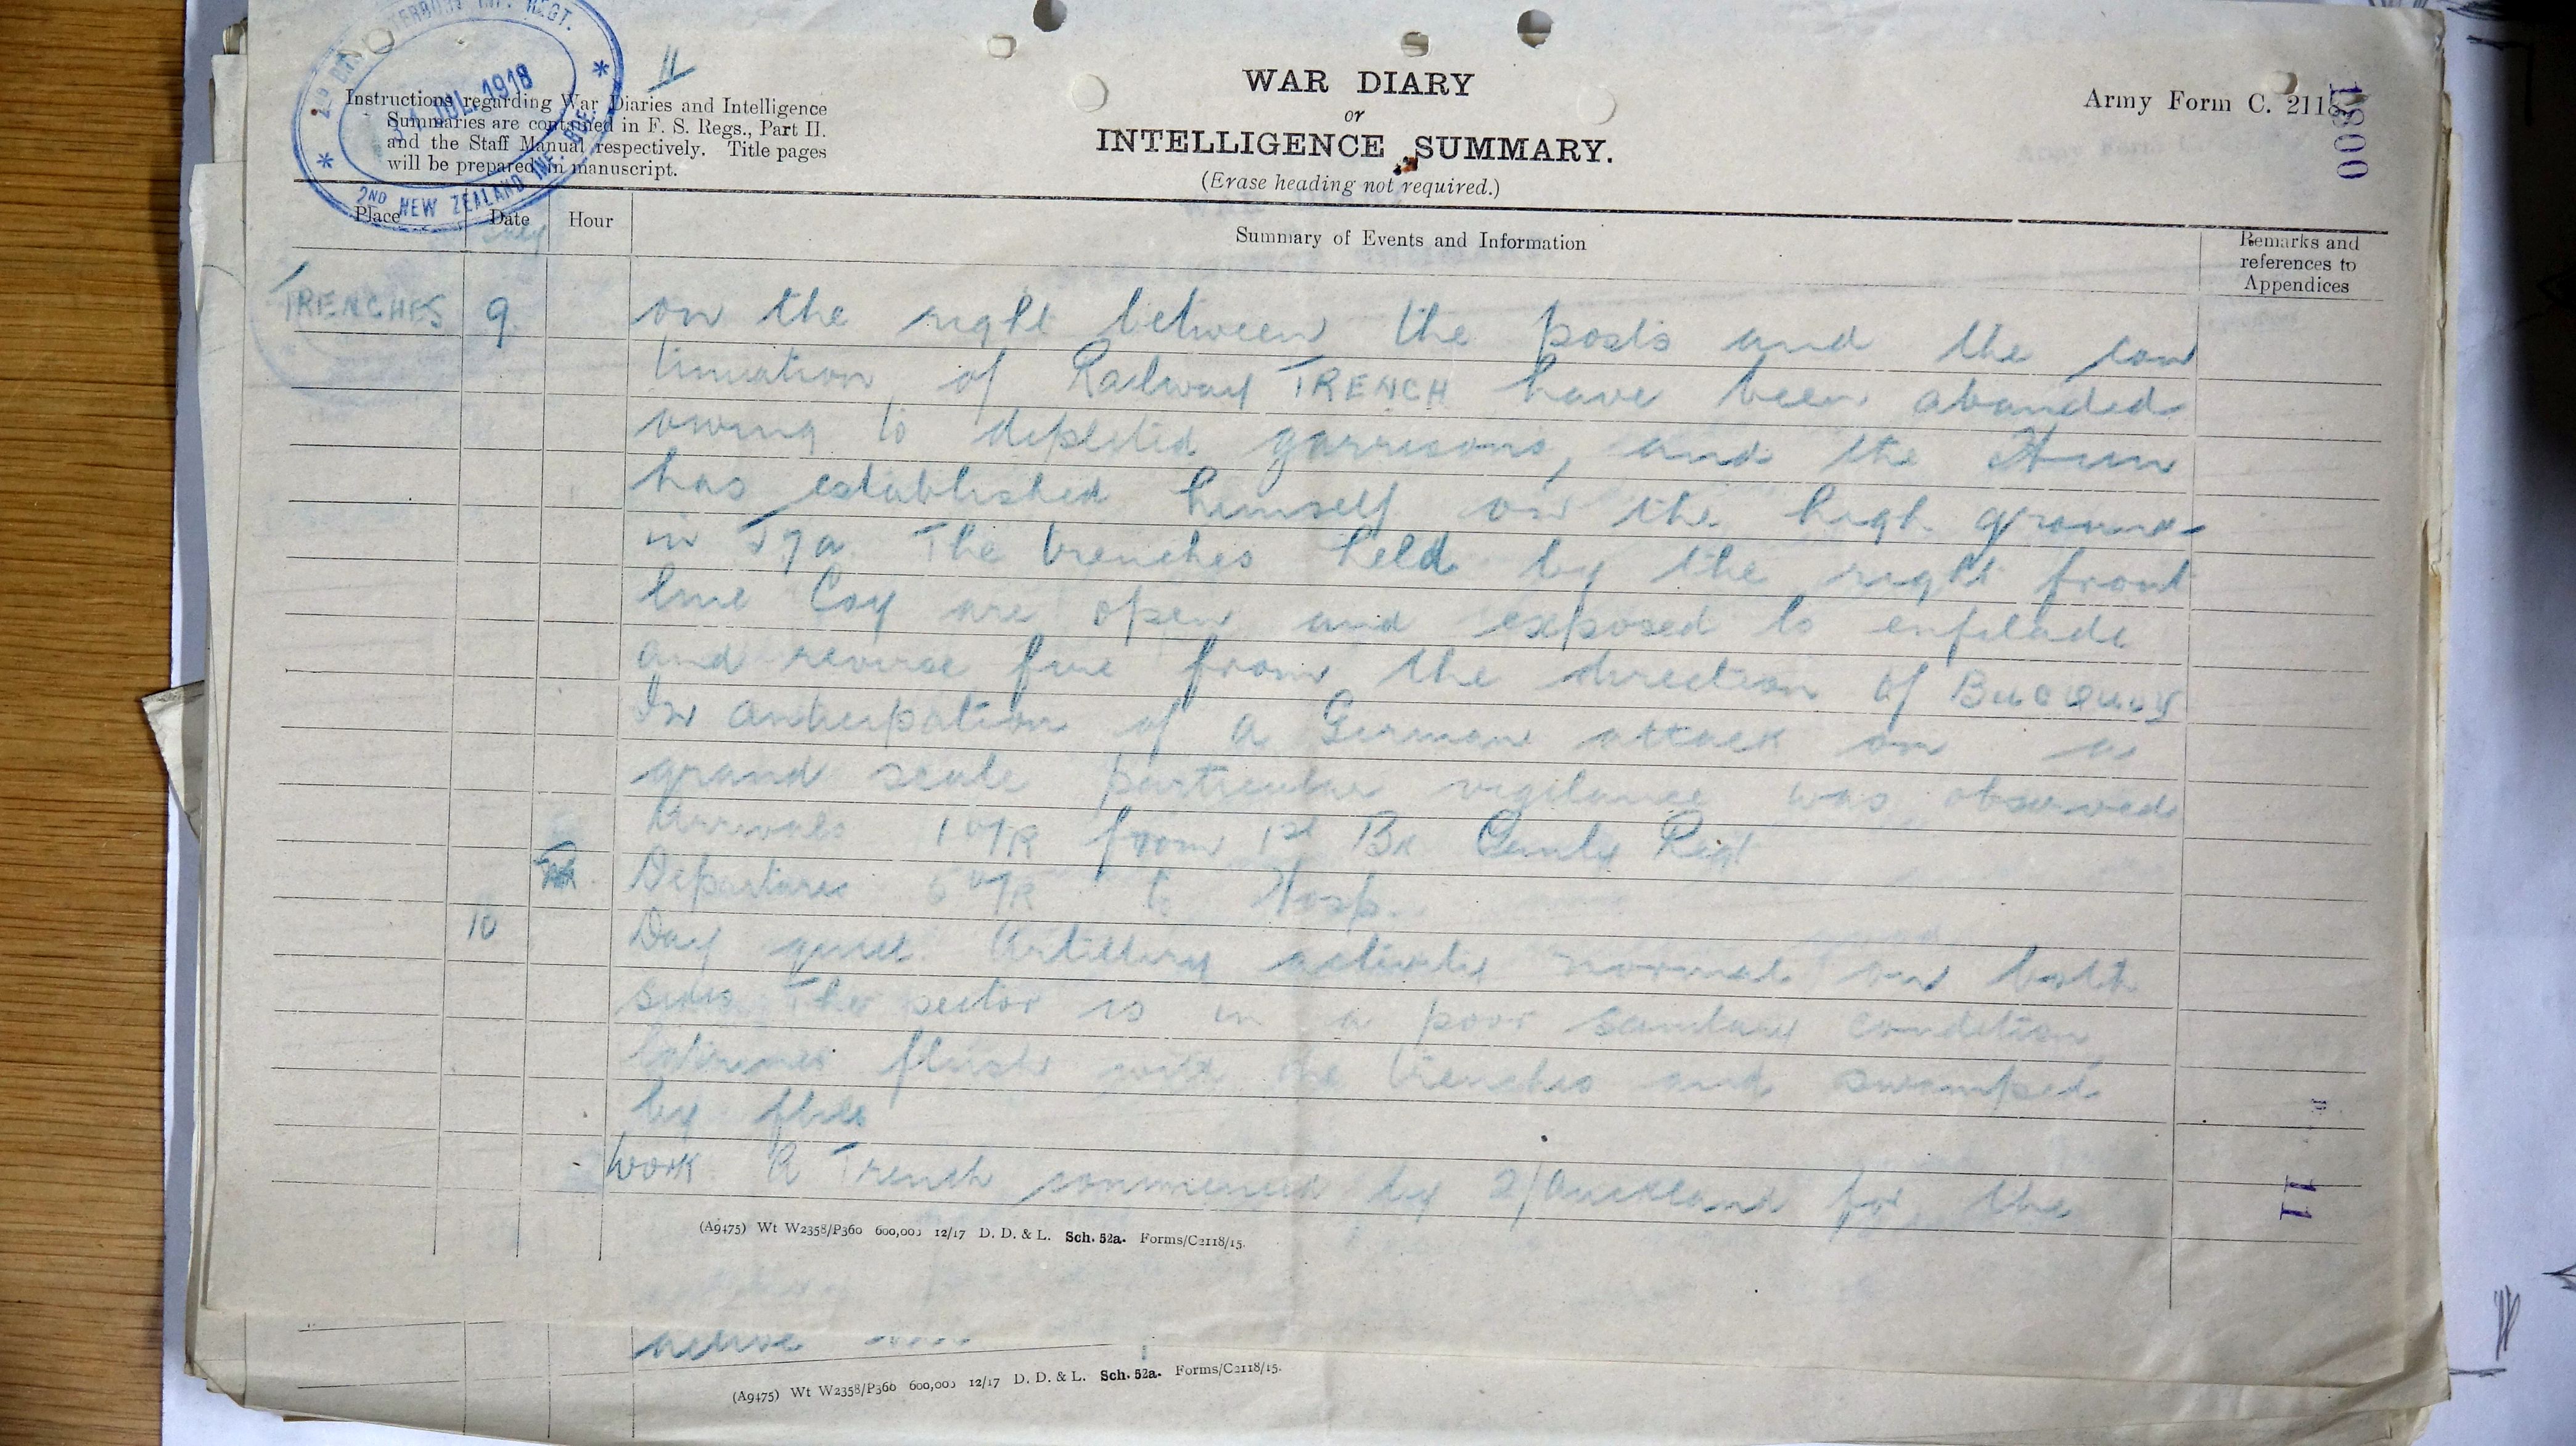 11
WAR DIARY
or
INTELLIGENCE SUMMARY.
(Erase heading not required.)
Army Form C. 2118
1800
Instructions regarding War Diaries and Intelligence
Summaries are contained in F. S. Regs., Part II.
and the Staff Manual respectively. Title pages
will be prepared in manuscript.
INF. REGT.
31 JUL. 1918
2ND NEW ZEALAND INF. BDE.
Place Date Hour Summary of Events and Information Remarks and references to Appendices
July
TRENCHES 9 on the right between the posts and the con
tinuation of Railway TRENCH have been abanded
owing to depleted garrisons, and the Hun
has established himself on the high ground
in 
The trenches held by the right front
line Coy are open and exposed to enfilade
and reverse fire from the direction of BUCQUOY
In anticipation of a German attack on a
grand scale particular vigilance was observed
Arrivals 1 O/R from 1st Bn Canty Regt
Departures 6 O/R to Hosp.
10 Day quiet. Artillery activity normal on both
sides The sector is in a poor sanitary condition,
latrines flush with the trenches and swamped
by flies
Work R Trench commenced by 2/Auckland for the
11
(A9475) Wt W2358/P360 600,000 12/17 D. D. & L. Sch. 52a. Forms/C2118/15.
active
(A9475) Wt W2358/P360 600,000 12/17 D. D. & L. Sch. 52a. Forms/C2118/15.